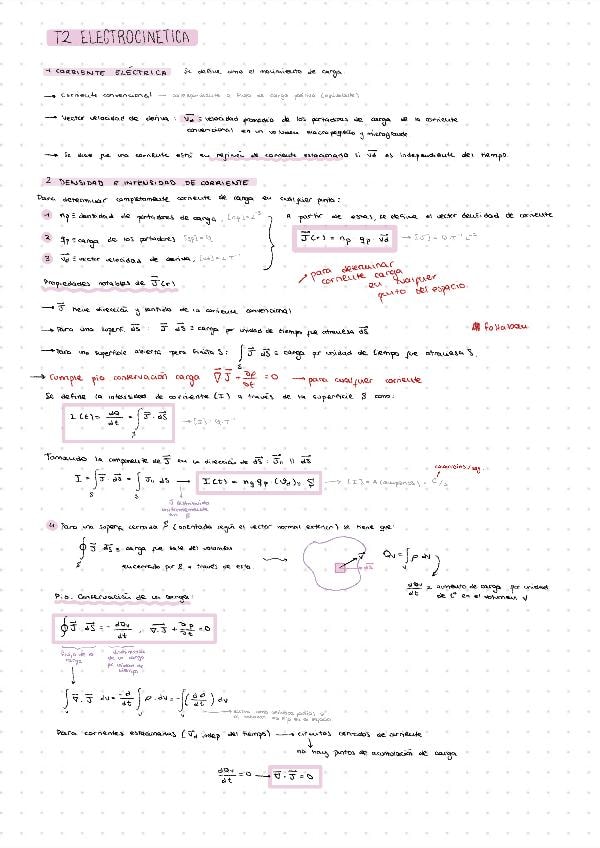 T2 ELECTROCINETICA
1 CORRIENTE ELÉCTRICA Se define como el movimiento de carga
→ Corriente convencional → correspondiente a flujo de carga positiva (equivalente)
→ Vector velocidad de deriva: v⃗d = velocidad promedio de los portadores de carga de la corriente
convencional en un volumen macropequeño y microgrande
→ Se dice que una corriente está en régimen de corriente estacionario si v⃗d es independiente del tiempo.
2 DENSIDAD E INTENSIDAD DE CORRIENTE
Para determinar completamente corriente de carga en cualquier punto:
1 np = densidad de portadores de carga, [np] = L⁻³
A partir de estas, se define el vector densidad de corriente
2 qp = carga de los portadores [qp] = Q
J⃗(r) = np qp v⃗d → [J] = Q T⁻¹ L⁻²
3 v⃗d = vector velocidad de deriva, [vd] = L T⁻¹
para determinar
corriente carga
en cualquier
punto del espacio.
Propiedades notables de J⃗(r)
→ J⃗ tiene dirección y sentido de la corriente convencional
→ Para una superf. dS⃗: J⃗ dS⃗ = carga por unidad de tiempo que atraviesa dS⃗
→ Para una superficie abierta pero finita S: ∫S J⃗ dS⃗ = carga por unidad de tiempo que atraviesa S.
→ Cumple pio conservación carga ∇⃗ J⃗ - ∂ρ/∂t = 0 → para cualquier corriente
Se define la intensidad de corriente (I) a través de la superficie S como:
I(t) = dQ/dt = ∫S J⃗ · dS⃗ → [I] = Q T⁻¹
Tomando la componente de J⃗ en la dirección de dS⃗: J⃗ || dS⃗
I = ∫S J⃗ · dS⃗ = ∫S J|| dS → I(t) = nq qp (vd)|| S → [I] = A (amperios) = C/s
J distribuido
uniformemente
en S
4 Para una superf. cerrada S (orientada según el vector normal exterior) se tiene que:
∮S J⃗ dS⃗ = carga que sale del volumen
encerrado por S a través de esta
dS⃗
Qv = ∫v ρ dv
dQv/dt = aumento de carga por unidad
de tº en el volumen V
P.io. Conservación de la carga:
∮ J⃗ · dS⃗ = - dQv/dt, ∇⃗ · J⃗ + ∂ρ/∂t = 0
flujo de la
carga
de la carga
por unidad de
tiempo
∫v ∇⃗ · J⃗ dv = -d/dt ∫v ρ · dv = -∫v (dρ/dt) dv
Para corrientes estacionarias (v⃗d indep del tiempo) → circuitos cerrados de corriente
no hay puntos de acumulación de carga
dQv/dt = 0 → ∇⃗ · J⃗ = 0